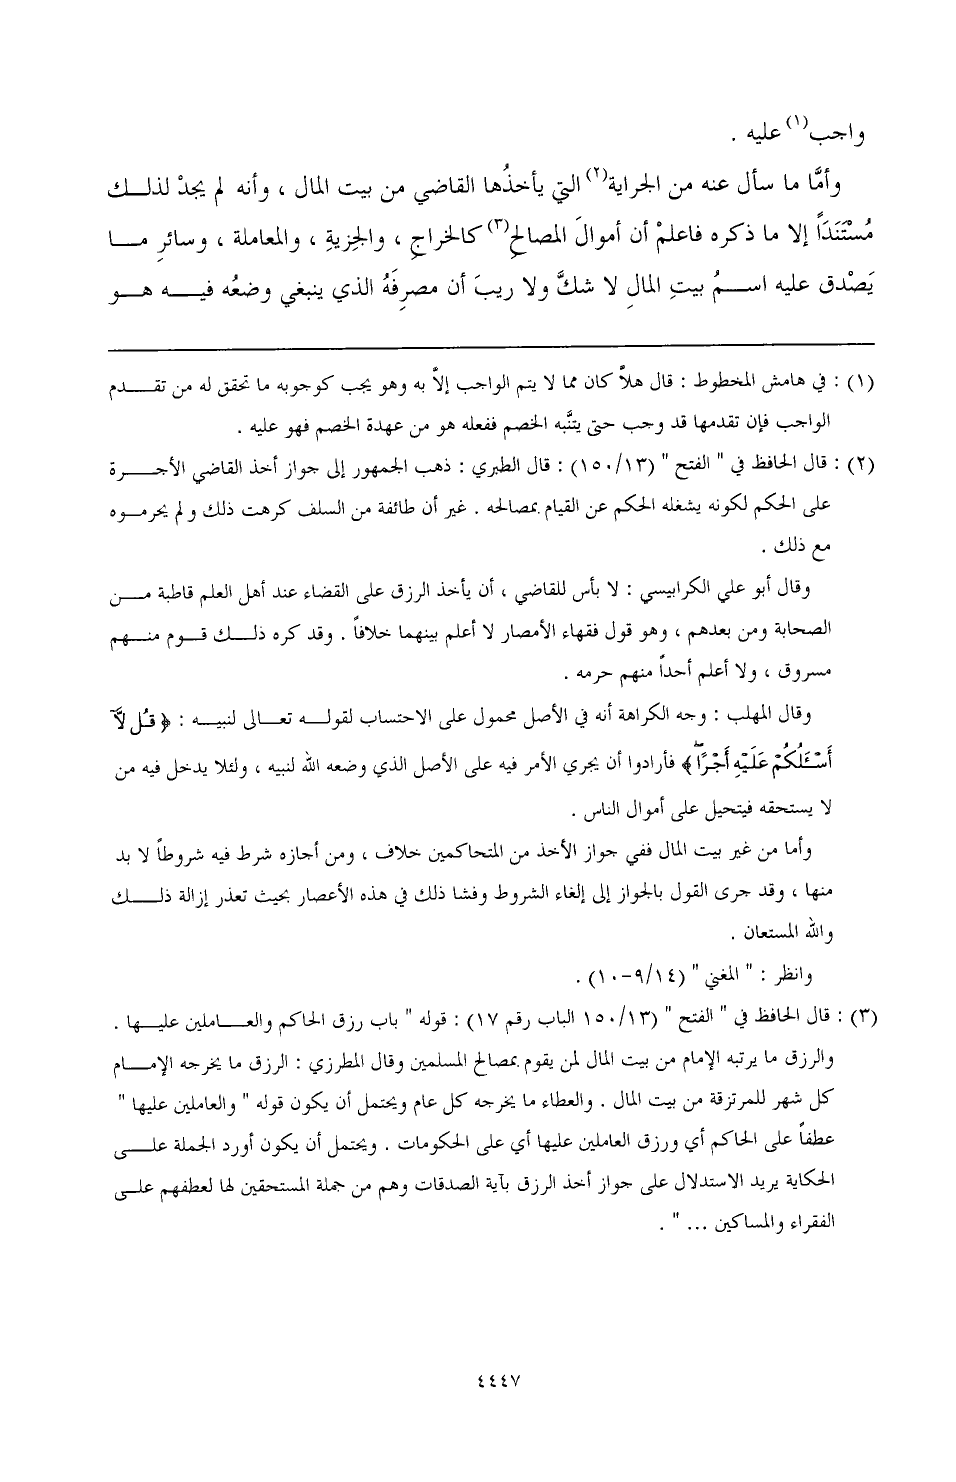 واجب(١) عليه .
وأمَّا ما سأل عنه من الجراية(٢) التي يأخذُها القاضي من بيت المال ، وأنه لم يجدْ لذلك
مُسْتَنَدَاً إلا ما ذكره فاعلمْ أن أموالَ المصالحِ(٣) كالخراجِ ، والجِزيةِ ، والمعاملة ، وسائرِ ما
يَصْدق عليه اسمُ بيتِ المالِ لا شكَّ ولا ريبَ أن مصرِفَهُ الذي ينبغي وضعُه فيه هو
(١) : في هامش المخطوط : قال هلاَّ كان مما لا يتم الواجب إلاَّ به وهو يجب كوجوبه ما تحقق له من تقدم
الواجب فإن تقدمها قد وجب حتى يتنَّبه الخصم ففعله هو من عهدة الخصم فهو عليه .
(٢) : قال الحافظ في " الفتح " (١٥٠/١٣) : قال الطبري : ذهب الجمهور إلى جواز أخذ القاضي الأجرة
على الحكم لكونه يشغله الحكم عن القيام بمصالحه . غير أن طائفة من السلف كرهت ذلك و لم يحرموه
مع ذلك .
وقال أبو علي الكرابيسي : لا بأس للقاضي ، أن يأخذ الرزق على القضاء عند أهل العلم قاطبة من
الصحابة ومن بعدهم ، وهو قول فقهاء الأمصار لا أعلم بينهما خلافاً . وقد كره ذلك قوم منهم
مسروق ، ولا أعلم أحداً منهم حرمه .
وقال المهلب : وجه الكراهة أنه في الأصل محمول على الاحتساب لقوله تعالى لنبيه : ﴿ قُل لَّآ
أَسْـَٔلُكُمْ عَلَيْهِ أَجْرًاۖ ﴾ فأرادوا أن يجري الأمر فيه على الأصل الذي وضعه الله لنبيه ، ولئلا يدخل فيه من
لا يستحقه فيتحيل على أموال الناس .
وأما من غير بيت المال ففي جواز الأخذ من المتحاكمين خلاف ، ومن أجازه شرط فيه شروطاً لا بد
منها ، وقد جرى القول بالجواز إلى إلغاء الشروط وفشا ذلك في هذه الأعصار بحيث تعذر إزالة ذلك
والله المستعان .
وانظر : " المغني " (٩/١٤-١٠) .
(٣) : قال الحافظ في " الفتح " (١٥٠/١٣ الباب رقم ١٧) : قوله " باب رزق الحاكم والعاملين عليها .
والرزق ما يرتبه الإمام من بيت المال لمن يقوم بمصالح المسلمين وقال المطرزي : الرزق ما يخرجه الإمام
كل شهر للمرتزقة من بيت المال . والعطاء ما يخرجه كل عام ويحتمل أن يكون قوله " والعاملين عليها "
عطفاً على الحاكم أي ورزق العاملين عليها أي على الحكومات . ويحتمل أن يكون أورد الجملة على
الحكاية يريد الاستدلال على جواز أخذ الرزق بآية الصدقات وهم من جملة المستحقين لها لعطفهم على
الفقراء والمساكين ... " .
٤٤٤٧